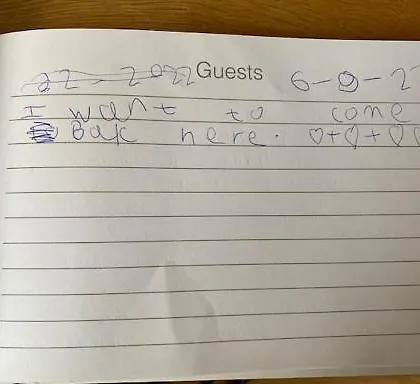 22 - 2022 Guests 6-9-2
I want to come
Bak here. ♡+♡+♡♡